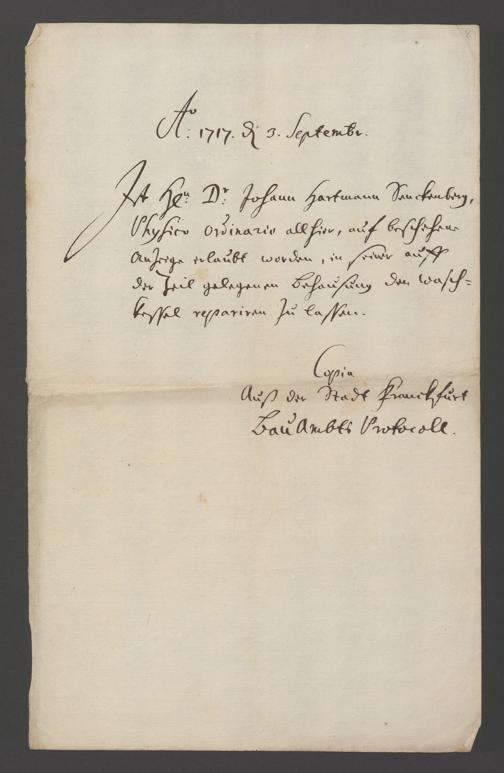 Aº: 1717. dẽ 3. Septembr.
Ist Hen: Dr: Johann Hartmann Senckenberg,
Physico ordinario allhier, auf beschehene
Anzeige erlaubt worden, in seiner auff
der Zeil gelegenen Behausung den wasch=
kessel repariren zu lassen.
Copia
Auß der Stadt Franckfurt
BauAmbts Protocoll.